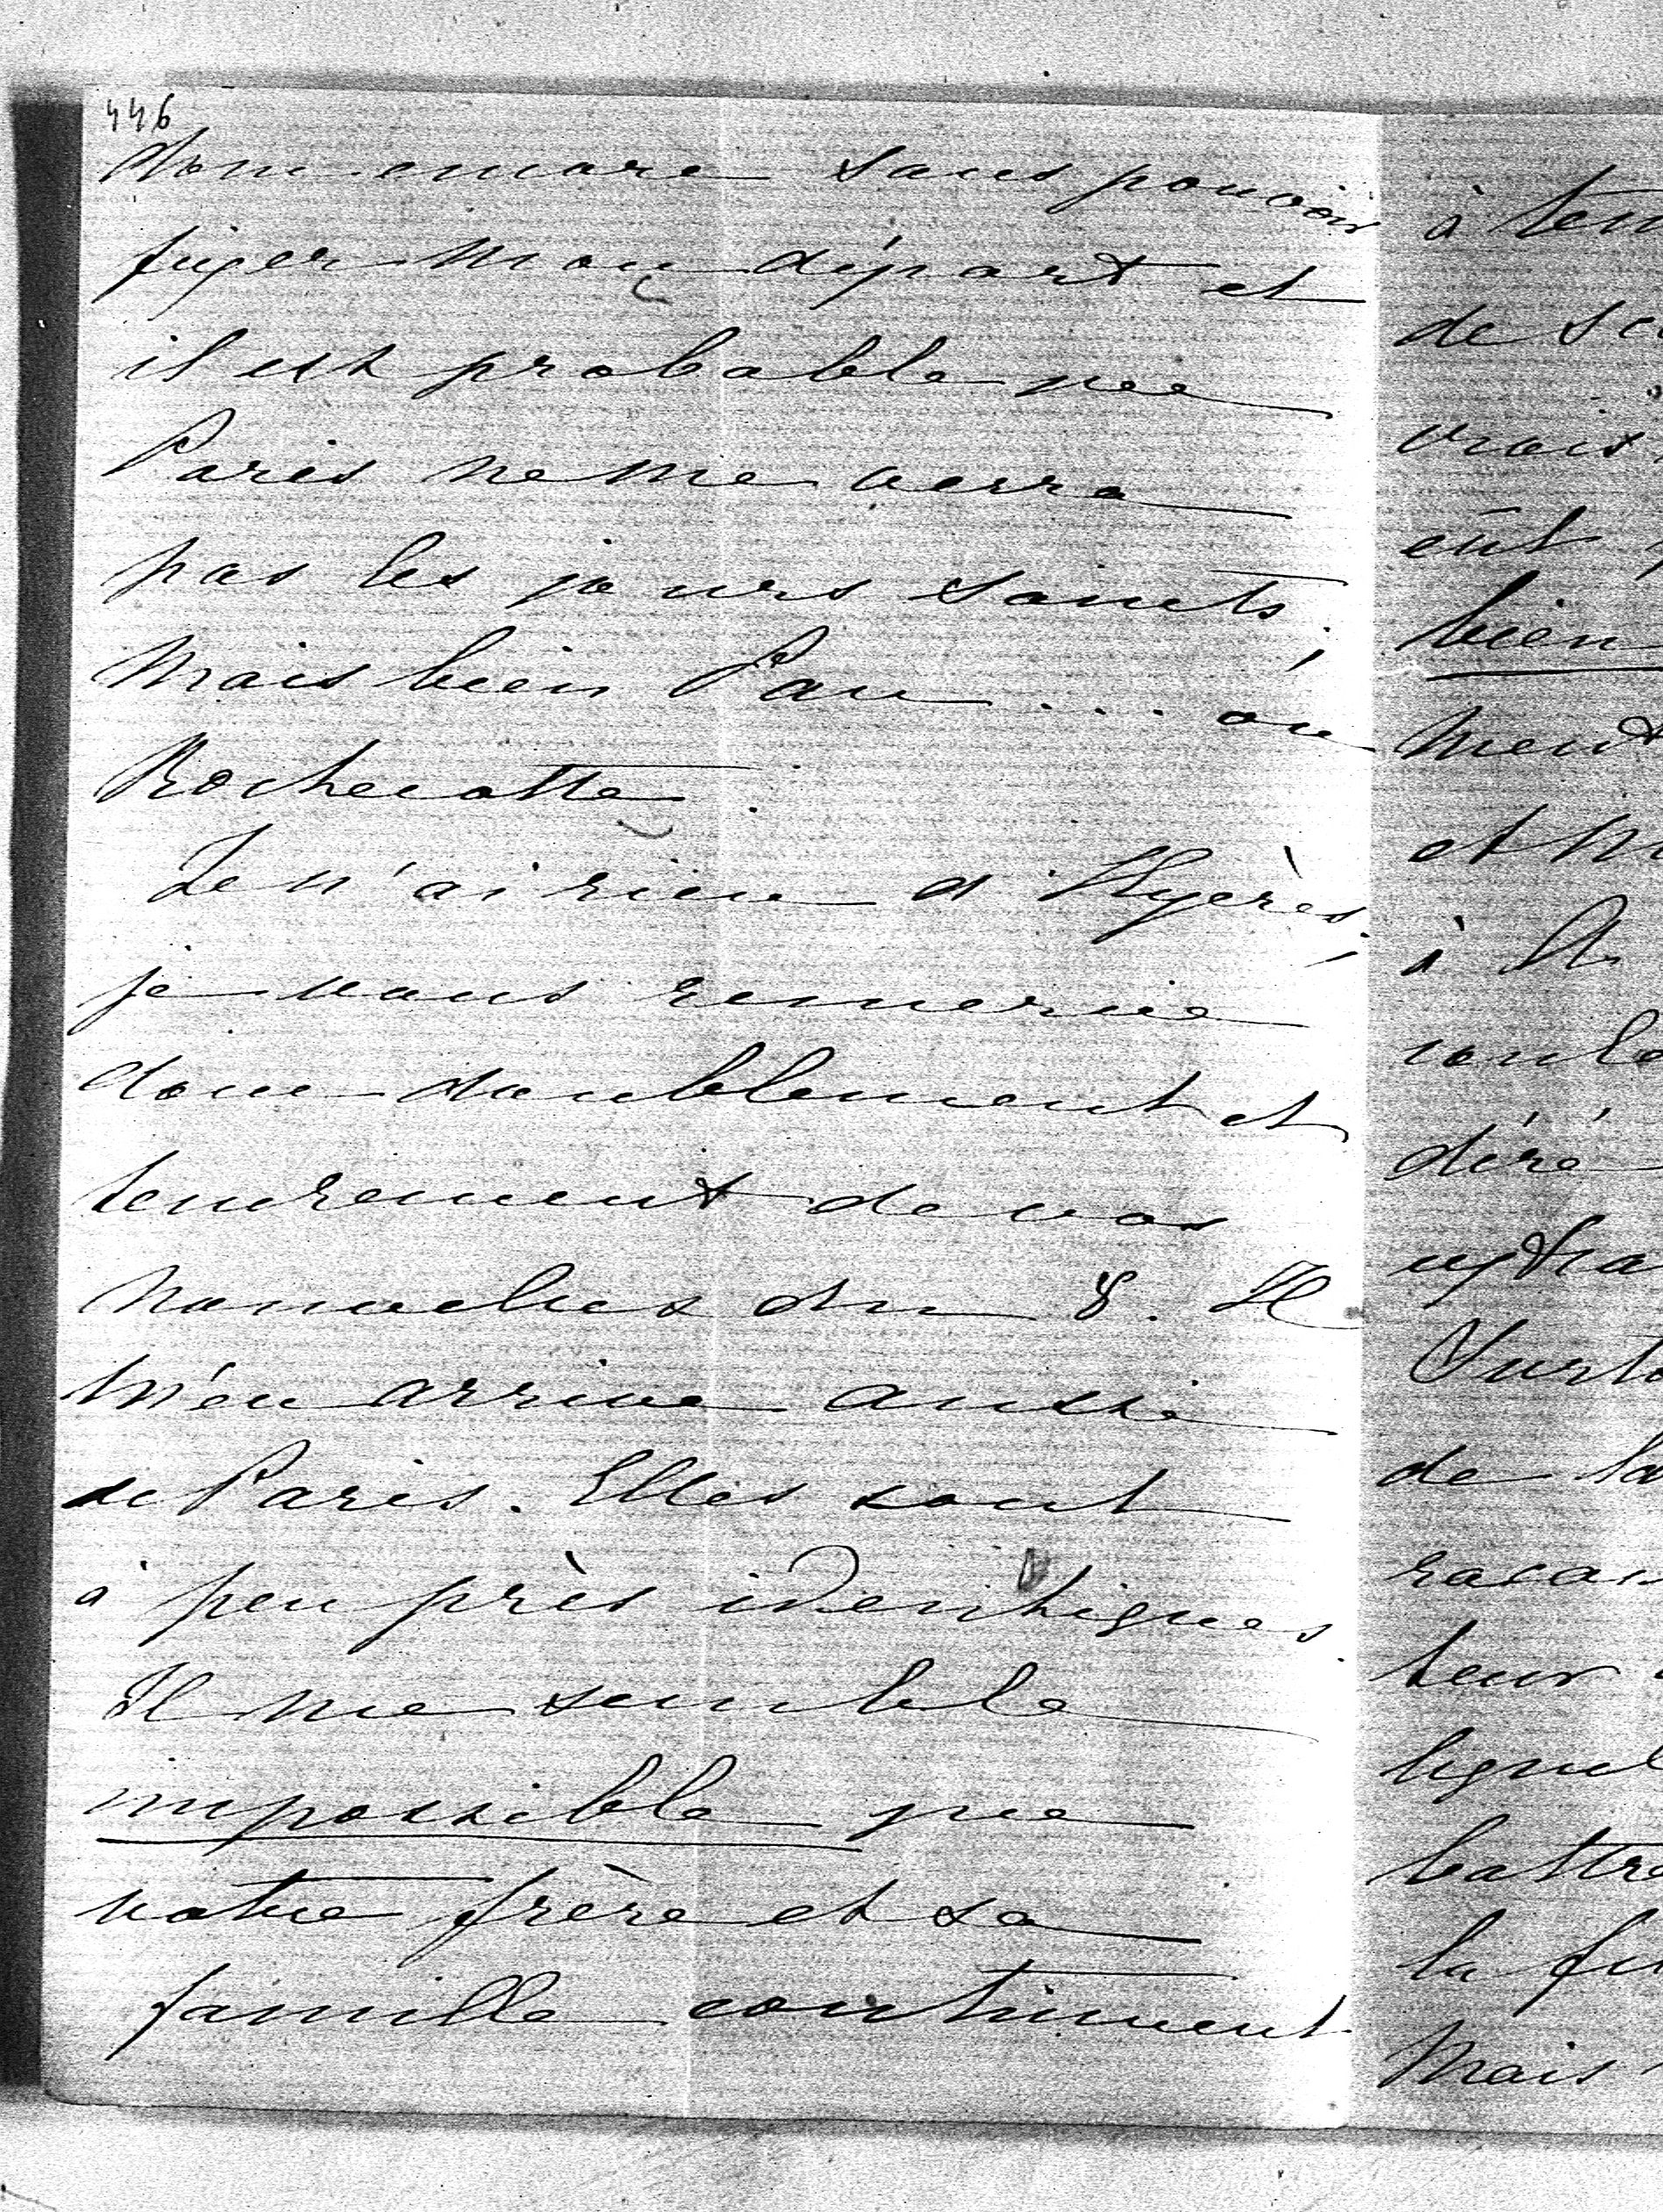 446
donc encore sans pouvoir
figer mon départ et
il est probable que
Paris ne me verra
pas les jours saints,
mais bien Pau ... ou
Rochecotte.
Je n'ai rien d'Hyères,
je vous remercie
donc doublement et
tendrement de vos
nouvelles du 8. Il
m'en arrive aussi
de Paris. Elles sont
à peu près identiques.
Il me semble
impossible que
votre frère et sa
famille continuent
à
de
vrais
eût
bien
et
à
de la
la
Mais